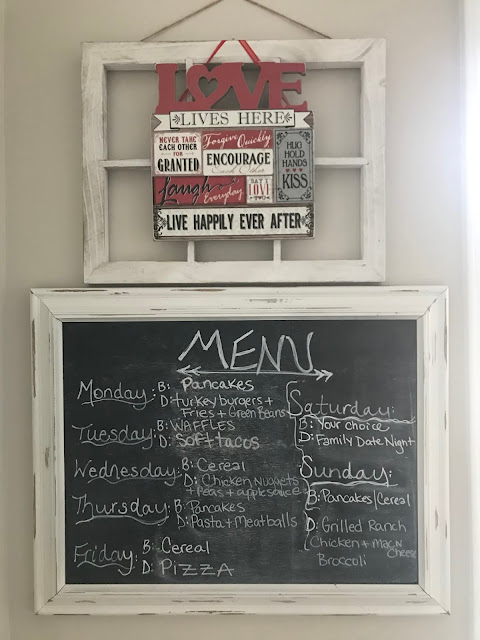 LOVE
LIVES HERE
NEVER TAKE
EACH OTHER
FOR
GRANTED
Forgive Quickly
ENCOURAGE
Each Other
HUG
HOLD
HANDS
KISS
Laugh
Everyday
SAY I
LOVE
YOU
LIVE HAPPILY EVER AFTER
MENU
Monday: B: Pancakes
D: turkey burgers +
Fries + Green Beans
Tuesday: B: WAFFLES
D: Soft tacos
Wednesday: B: Cereal
D: Chicken Nuggets
+ Peas + applesauce
Thursday: B: Pancakes
D: Pasta + Meatballs
Friday: B: Cereal
D: PIZZA
Saturday:
B: Your choice
D: Family Date Night
Sunday:
B: Pancakes/Cereal
D: Grilled Ranch
Chicken + Mac N
Cheese
Broccoli